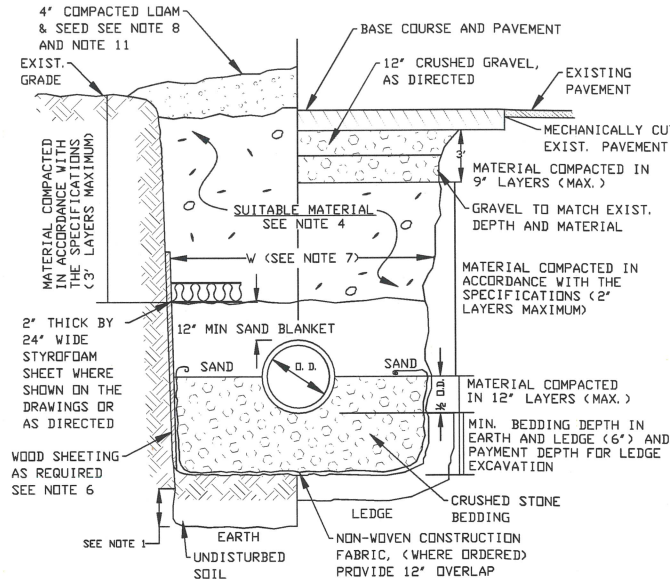 4" COMPACTED LOAM
& SEED SEE NOTE 8
AND NOTE 11
EXIST.
GRADE
BASE COURSE AND PAVEMENT
12" CRUSHED GRAVEL,
AS DIRECTED
EXISTING
PAVEMENT
MECHANICALLY CU
EXIST. PAVEMENT
3'
MATERIAL COMPACTED IN
9" LAYERS (MAX.)
GRAVEL TO MATCH EXIST.
DEPTH AND MATERIAL
MATERIAL COMPACTED
IN ACCORDANCE WITH
THE SPECIFICATIONS
(3' LAYERS MAXIMUM)
SUITABLE MATERIAL
SEE NOTE 4
W (SEE NOTE 7)
MATERIAL COMPACTED IN
ACCORDANCE WITH THE
SPECIFICATIONS (2"
LAYERS MAXIMUM)
2" THICK BY
24" WIDE
STYROFOAM
SHEET WHERE
SHOWN ON THE
DRAWINGS OR
AS DIRECTED
12" MIN SAND BLANKET
SAND
O. D.
SAND
½ O.D.
MATERIAL COMPACTED
IN 12" LAYERS (MAX.)
MIN. BEDDING DEPTH IN
EARTH AND LEDGE (6") AND
PAYMENT DEPTH FOR LEDGE
EXCAVATION
WOOD SHEETING
AS REQUIRED
SEE NOTE 6
CRUSHED STONE
BEDDING
LEDGE
EARTH
SEE NOTE 1
UNDISTURBED
SOIL
NON-WOVEN CONSTRUCTION
FABRIC, (WHERE ORDERED)
PROVIDE 12" OVERLAP